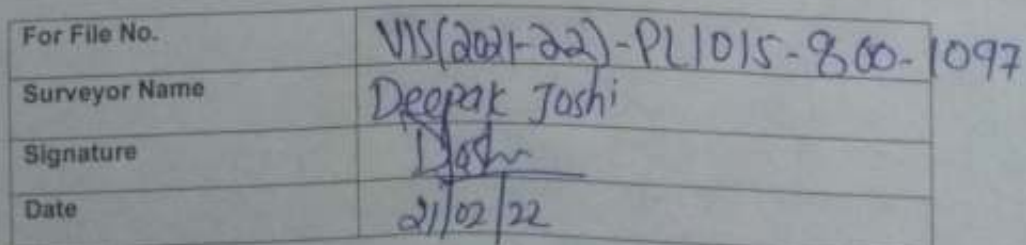 For File No. VIS(2021-22)-PL1015-860-1097
Surveyor Name Deepak Joshi
Signature DJoshi
Date 21/02/22